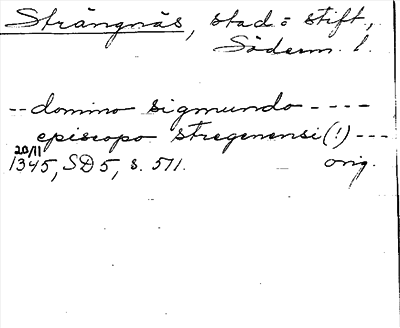 Strängnäs, stad o stift,
Söderm. l.
-- domino sigmundo ----
episcopo stregenensi (!) ---
20/11
1345, SD 5, s. 571. orig.